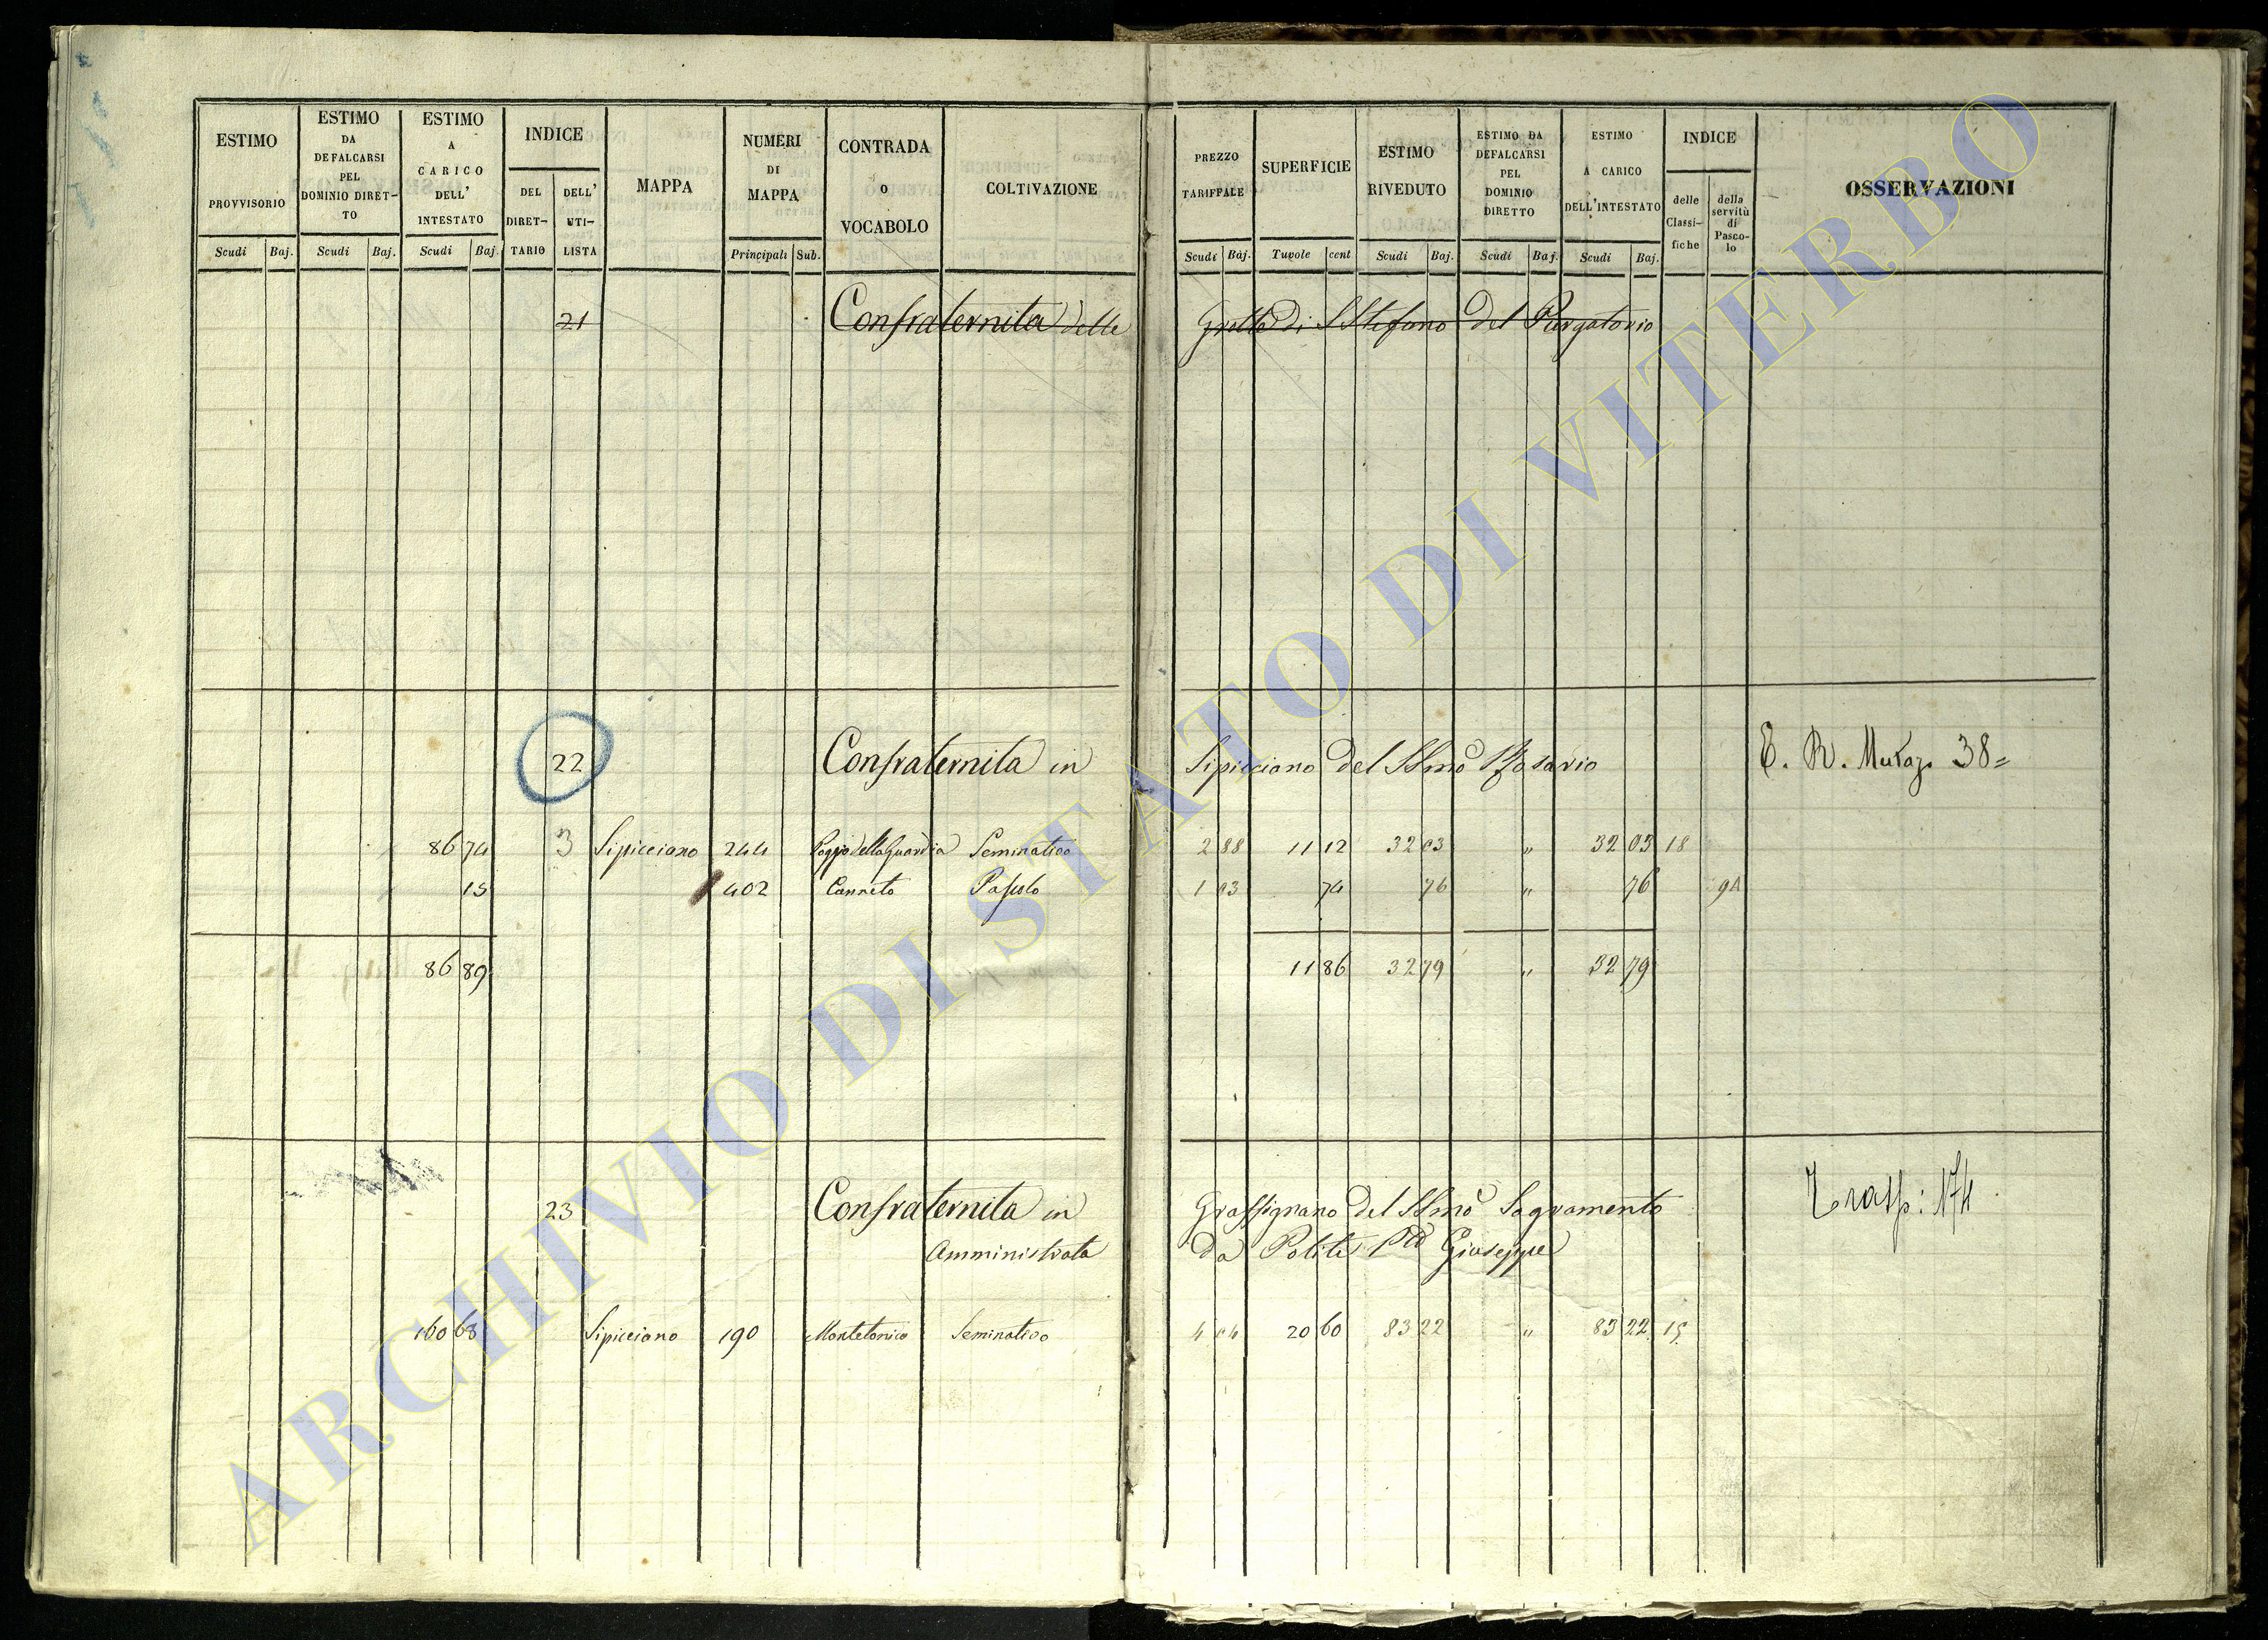 ESTIMO PROVVISORIO Scudi Baj.
ESTIMO DA DEFALCARSI PEL DOMINIO DIRETTO Scudi Baj.
ESTIMO A CARICO DELL' INTESTATO Scudi Baj.
INDICE DEL DIRETTARIO DELL' UTILISTA
MAPPA
NUMERI DI MAPPA Principali Sub.
CONTRADA O VOCABOLO
COLTIVAZIONE
PREZZO TARIFFALE Scudi Baj.
SUPERFICIE Tavole cent
ESTIMO RIVEDUTO Scudi Baj.
ESTIMO DA DEFALCARSI PEL DOMINIO DIRETTO Scudi Baj.
ESTIMO A CARICO DELL'INTESTATO Scudi Baj.
INDICE delle Classifiche della servitù di Pascolo
OSSERVAZIONI
21 Confraternita delle Grotte di S Stefano del Purgatorio
22 Confraternita in Sipicciano del SSmo Rosario E. R. 38=
86 74 3 Sipicciano 244 Poggio della Guardia Seminativo 2 88 11 12 32 03 " 32 03 18
15 402 Canneto Pascolo 1 03 74 76 " 76 9A
86 89 11 86 32 79 " 32 79
23 Confraternita in Grassignano del SSmo Sagramento Trasp: 174
Amministrata da Politi Giuseppe
160 68 Sipicciano 190 Montetonico Seminativo 4 04 20 60 83 22 " 83 22 15
ARCHIVIO DI STATO DI VITERBO